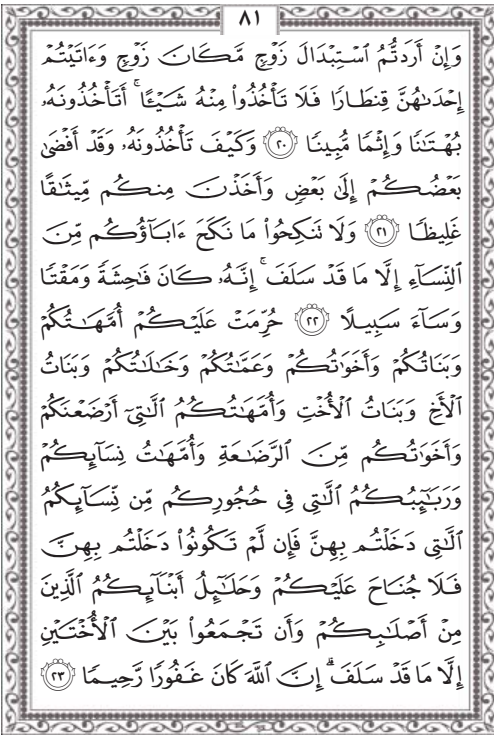 ٨١
وَإِنْ أَرَدتُّمُ ٱسْتِبْدَالَ زَوْجٍ مَّكَانَ زَوْجٍ وَءَاتَيْتُمْ
إِحْدَىٰهُنَّ قِنطَارًا فَلَا تَأْخُذُوا۟ مِنْهُ شَيْـًٔا ۚ أَتَأْخُذُونَهُۥ
بُهْتَـٰنًا وَإِثْمًا مُّبِينًا ﴿٢٠﴾ وَكَيْفَ تَأْخُذُونَهُۥ وَقَدْ أَفْضَىٰ
بَعْضُكُمْ إِلَىٰ بَعْضٍ وَأَخَذْنَ مِنكُم مِّيثَـٰقًا
غَلِيظًا ﴿٢١﴾ وَلَا تَنكِحُوا۟ مَا نَكَحَ ءَابَآؤُكُم مِّنَ
ٱلنِّسَآءِ إِلَّا مَا قَدْ سَلَفَ ۚ إِنَّهُۥ كَانَ فَـٰحِشَةً وَمَقْتًا
وَسَآءَ سَبِيلًا ﴿٢٢﴾ حُرِّمَتْ عَلَيْكُمْ أُمَّهَـٰتُكُمْ
وَبَنَاتُكُمْ وَأَخَوَٰتُكُمْ وَعَمَّـٰتُكُمْ وَخَـٰلَـٰتُكُمْ وَبَنَاتُ
ٱلْأَخِ وَبَنَاتُ ٱلْأُخْتِ وَأُمَّهَـٰتُكُمُ ٱلَّـٰتِىٓ أَرْضَعْنَكُمْ
وَأَخَوَٰتُكُم مِّنَ ٱلرَّضَـٰعَةِ وَأُمَّهَـٰتُ نِسَآئِكُمْ
وَرَبَـٰٓئِبُكُمُ ٱلَّـٰتِى فِى حُجُورِكُم مِّن نِّسَآئِكُمُ
ٱلَّـٰتِى دَخَلْتُم بِهِنَّ فَإِن لَّمْ تَكُونُوا۟ دَخَلْتُم بِهِنَّ
فَلَا جُنَاحَ عَلَيْكُمْ وَحَلَـٰٓئِلُ أَبْنَآئِكُمُ ٱلَّذِينَ
مِنْ أَصْلَـٰبِكُمْ وَأَن تَجْمَعُوا۟ بَيْنَ ٱلْأُخْتَيْنِ
إِلَّا مَا قَدْ سَلَفَ ۗ إِنَّ ٱللَّهَ كَانَ غَفُورًا رَّحِيمًا ﴿٢٣﴾